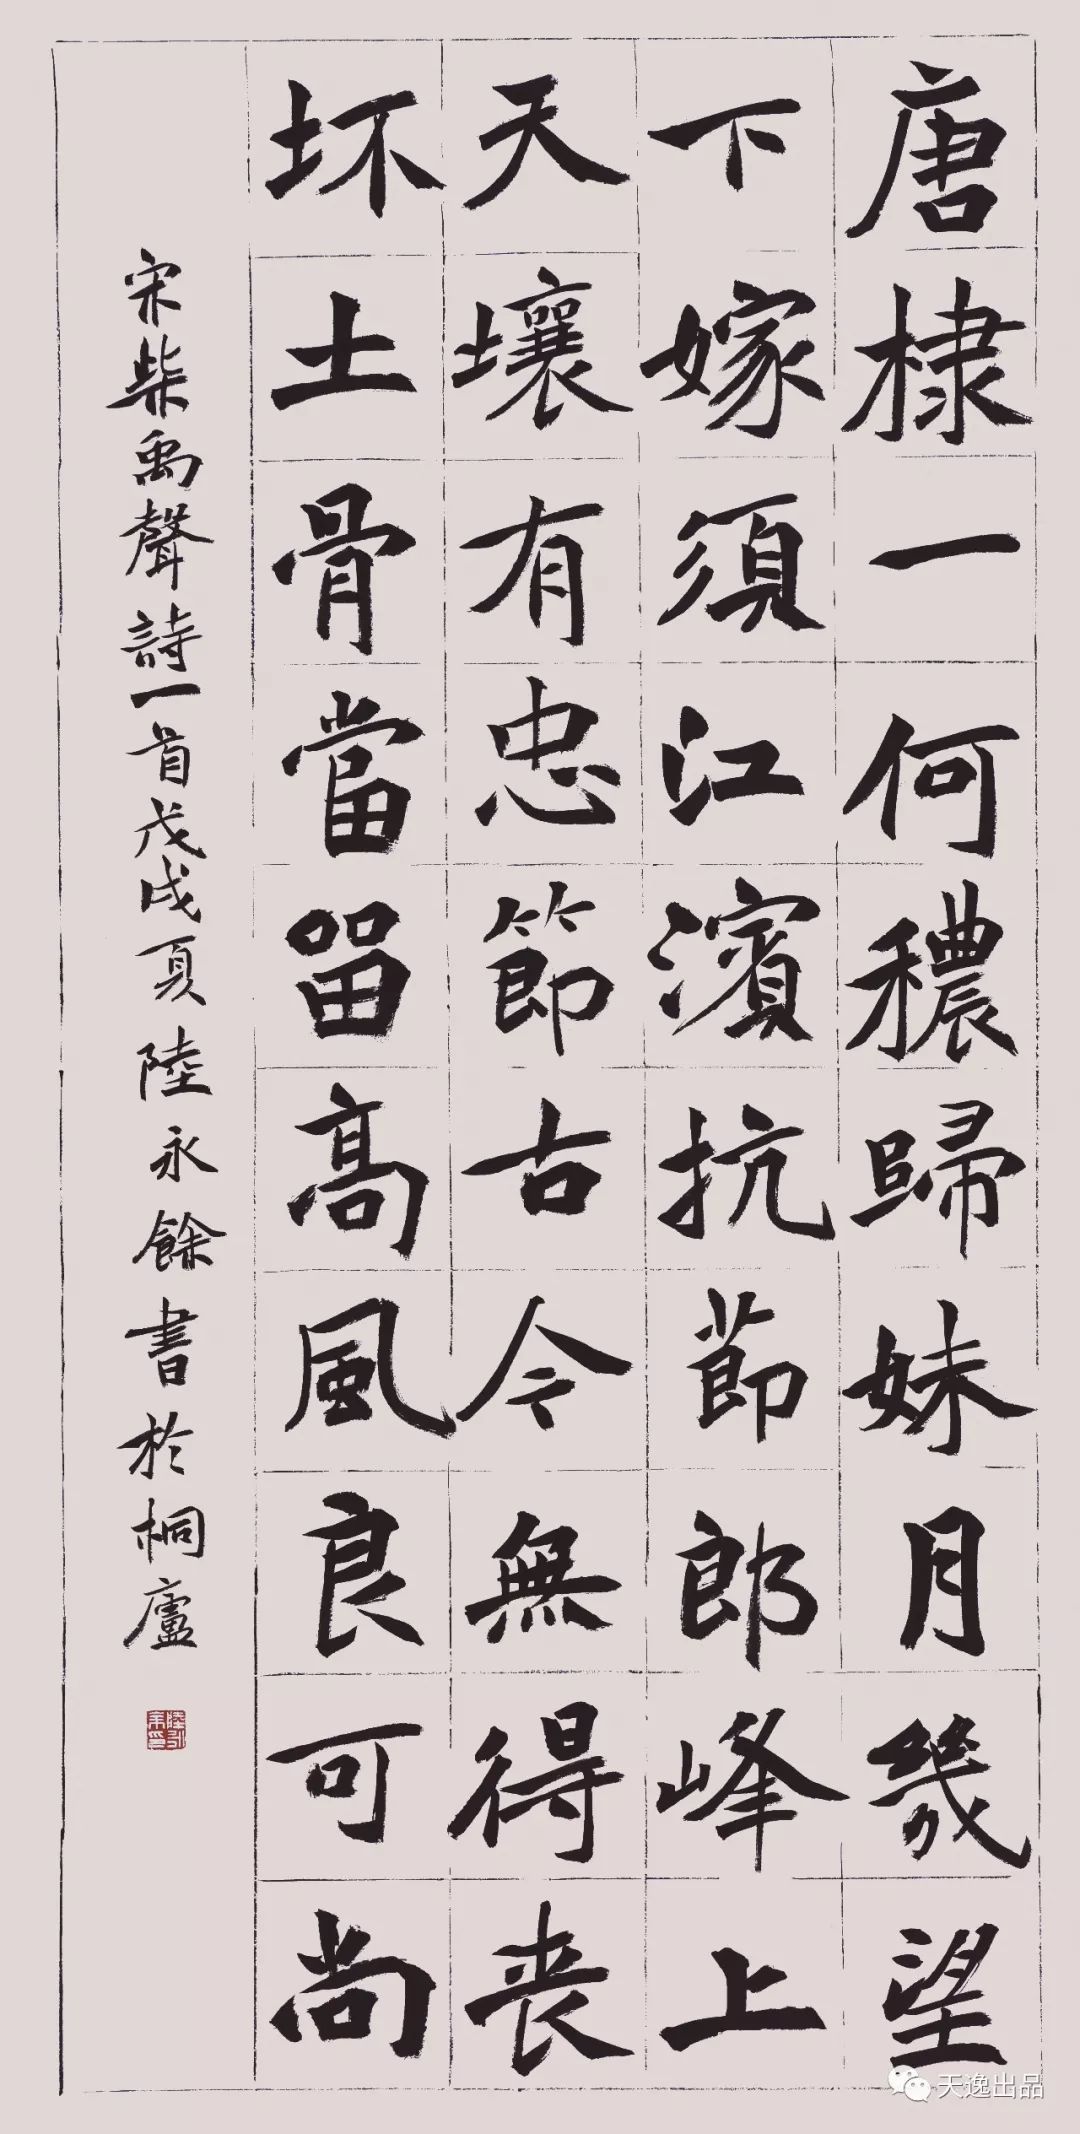 唐棣一何穠歸妹月幾望
下嫁須江濱抗節郎峰上
天壤有忠節古今無得喪
坏土骨當留高風良可尚
宋柴禹聲詩一首戊戌夏陸永餘書於桐廬
天逸出品